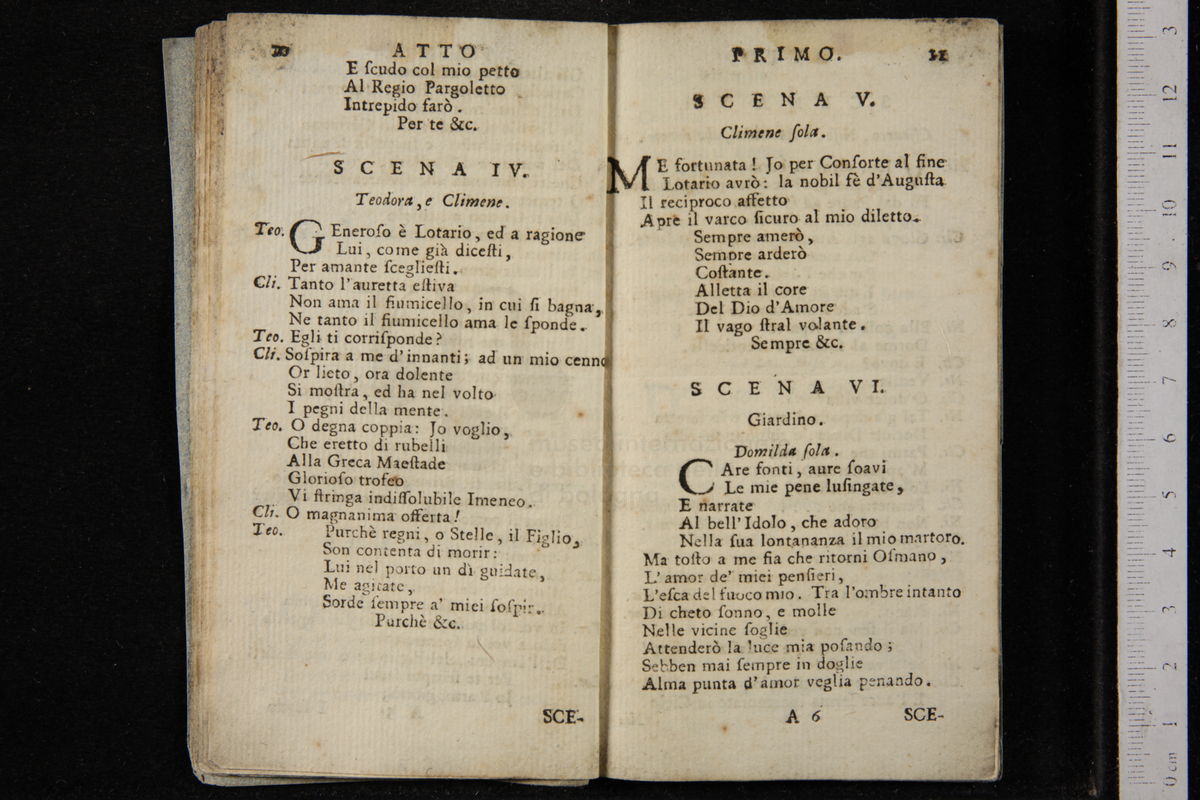 20 ATTO
E ſcudo col mio petto
Al Regio Pargoletto
Intrepido farò.
Per te &c.
SCENA IV.
Teodora, e Climene.
Teo. GEneroſo è Lotario, ed a ragione
Lui, come già diceſti,
Per amante ſceglieſti.
Cli. Tanto l'auretta eſtiva
Non ama il fiumicello, in cui ſi bagna,
Ne tanto il fiumicello ama le ſponde.
Teo. Egli ti corriſponde?
Cli. Soſpira a me d'innanti; ad un mio cenno
Or lieto, ora dolente
Si moſtra, ed ha nel volto
I pegni della mente.
Teo. O degna coppia: Jo voglio,
Che eretto di rubelli
Alla Greca Maeſtade
Glorioſo trofeo
Vi ſtringa indiſſolubile Imeneo.
Cli. O magnanima offerta!
Teo. Purchè regni, o Stelle, il Figlio,
Son contenta di morir:
Lui nel porto un dì guidate,
Me agitate,
Sorde ſempre a' miei ſoſpir.
Purchè &c.
SCE-
PRIMO. 21
SCENA V.
Climene ſola.
ME fortunata! Jo per Conſorte al fine
Lotario avrò: la nobil fè d'Auguſta
Il reciproco affetto
Apre il varco ſicuro al mio diletto.
Sempre amerò,
Sempre arderò
Coſtante.
Alletta il core
Del Dio d'Amore
Il vago ſtral volante.
Sempre &c.
SCENA VI.
Giardino.
Domilda ſola.
CAre fonti, aure ſoavi
Le mie pene luſingate,
E narrate
Al bell'Idolo, che adoro
Nella ſua lontananza il mio martoro.
Ma toſto a me fia che ritorni Oſmano,
L'amor de' miei penſieri,
L'eſca del fuoco mio. Tra l'ombre intanto
Di cheto ſonno, e molle
Nelle vicine ſoglie
Attenderò la luce mia poſando;
Sebben mai ſempre in doglie
Alma punta d'amor veglia penando.
A 6 SCE-
0 cm 1 2 3 4 5 6 7 8 9 10 11 12 3